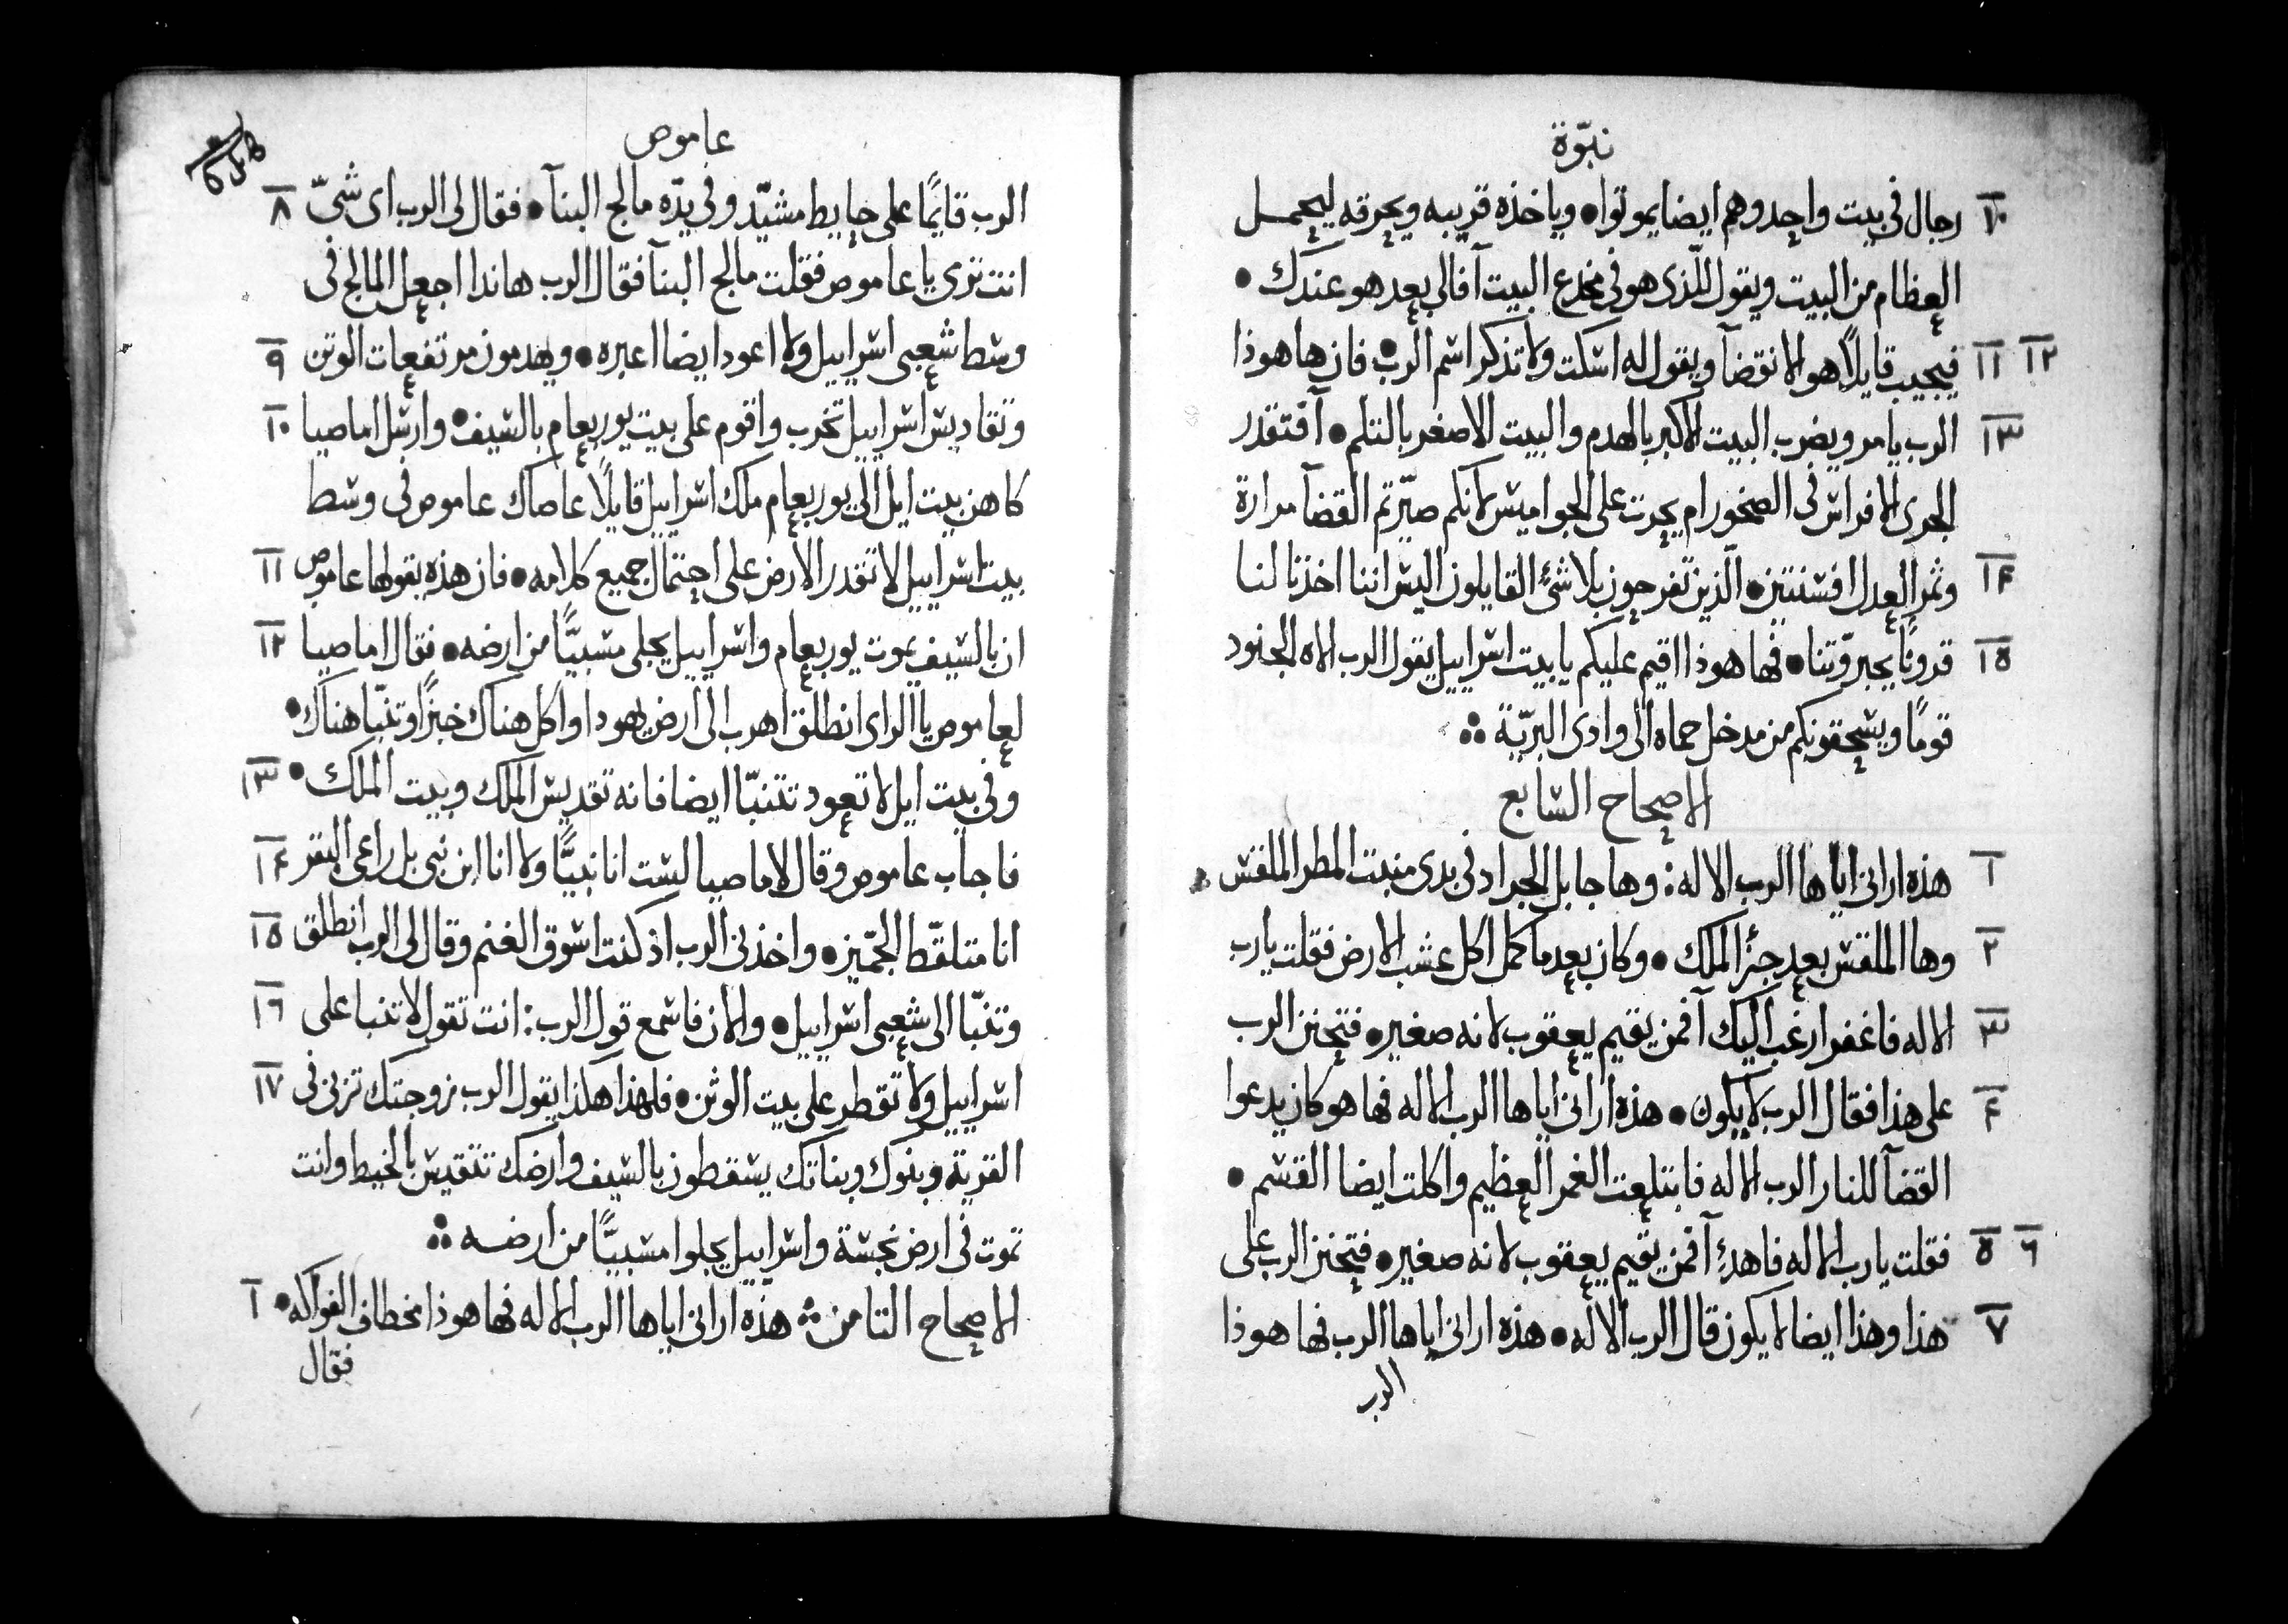 نبوّة
١٠ رجال فى بيت واحد وهم ايضا يموتوا • وياخذه قريبه ويحرقه ليحمل
العظام من البيت ويقول للّذى هو فى مخدع البيت آفالى بعد هو عندك •
١١ ١٢ فيجيب قايلاً هو الانقضآ ويقول له اسكت ولا تذكر اسم الرب • فان ها هوذا
١٣ الرب يامر ويضرب البيت الاكبر بالهدم والبيت الاصغر بالتلم • آفتقدر
الجرى الافراس فى الصخور ام يحرث على الجواميس لانكم صيّرتم القضآ مرارة
١٤ وثمر العدل افسنتين • الّذين تفرحون بلا شئٍ القايلون اليس اننا اخذنا لنا
١٥ قرونًا بجبروّتنا • فها هوذا اقيم عليكم يا بيت اسراييل يقول الرب الاه الجنود
قومًا ويسحقونكم من مدخل حماه الى وادى البريّة ⁘
الاصحاح السابع
١ هذه ارانى اياها الرب الاله : وها جابل الجراد فى بدى منبت المطر الملقس
٢ وها الملقس بعد جزّ الملك • وكان بعد ما كمل اكل عشب الارض فقلت يا رب
٣ الاله فاغفر ارغب اليك آفمن يقيم يعقوب لانه صغير • فتحنن الرب
٤ على هذا فقال الرب لا يكون • هذه ارانى اياها الرب الاله فها هو كان يدعوا
القضآ للنار الرب الاله فابتلعت الغمر العظيم واكلت ايضا القسم •
٥ ٦ فقلت يا رب الاله فاهدءِ آفمن يقيم يعقوب لانه صغير • فتحنن الرب على
٧ هذا وهذا ايضا لا يكون قال الرب الاله • هذه ارانى اياها الرب فها هوذا
الرب
عاموص
٨ الرب قايمًا على حايط مشيّد وفى يدّه مالج البنآ • فقال لى الرب اى شىّ
انت ترى يا عاموص فقلت مالج البنآ فقال الرب هاندا اجعل المالج فى
٩ وسط شعبى اسراييل ولا اعود ايضا اعبره • ويهدمون مرتفعات الوثن
١٠ وتقاديس اسراييل تخرب واقوم على بيت يوربعام بالسيف • وارسل اماصيا
كاهن بيت ايل الى يوربعام ملك اسراييل قايلاً عاصاك عاموص فى وسط
١١ بيت اسراييل لا تقدر الارض على احتمال جميع كلامه • فان هذه يقولها عاموص
١٢ ان بالسيف يموت يوربعام واسراييل يجلى مسبيًّا من ارضه • فقال اماصيا
لعاموص يا الراى انطلق اهرب الى ارض يهودا واكل هناك خبزًا وتنبّا هناك •
١٣ وفى بيت ايل لا تعود تتنبّا ايضا فانه تقديس الملك وبيت الملك •
١٤ فاجاب عاموص وقال لاماصيا لست انا نبيًّا ولا انا ابن نبى بل راعى البقر
١٥ انا متلقّط الجمّيز • واخذنى الرب اذ كنت اسوق الغنم وقال لى الرب انطلق
١٦ وتنبّا الى شعبى اسراييل • والان فاسمع قول الرب : انت تقول لا تنبا على
١٧ اسراييل ولا تقطر على بيت الوثن • فلهذا هكذا يقول الرب زوجتك تزنى فى
القرية وبنوك وبناتك يسقطون بالسيف وارضك تتقيس بالخيط وانت
تموت فى ارض نجسة واسراييل يجلوا مسبيًّا من ارضه ⁘
١ الاصحاح الثامن ⁘ هذه ارانى اياها الرب الاله فها هوذا مخطاف الفواكه •
فقال